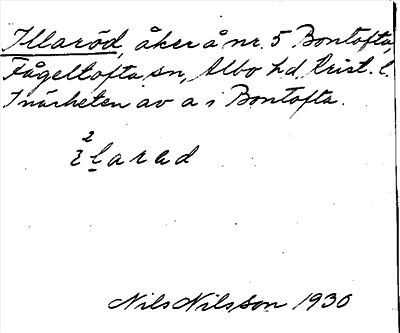 Illaröd, åker å nr. 5 Bontofta,
Fågeltofta sn, Albo hd, Krist. l.
I närheten av a i Bontofta.
2
ɛlarɑd
Nils Nilsson 1930